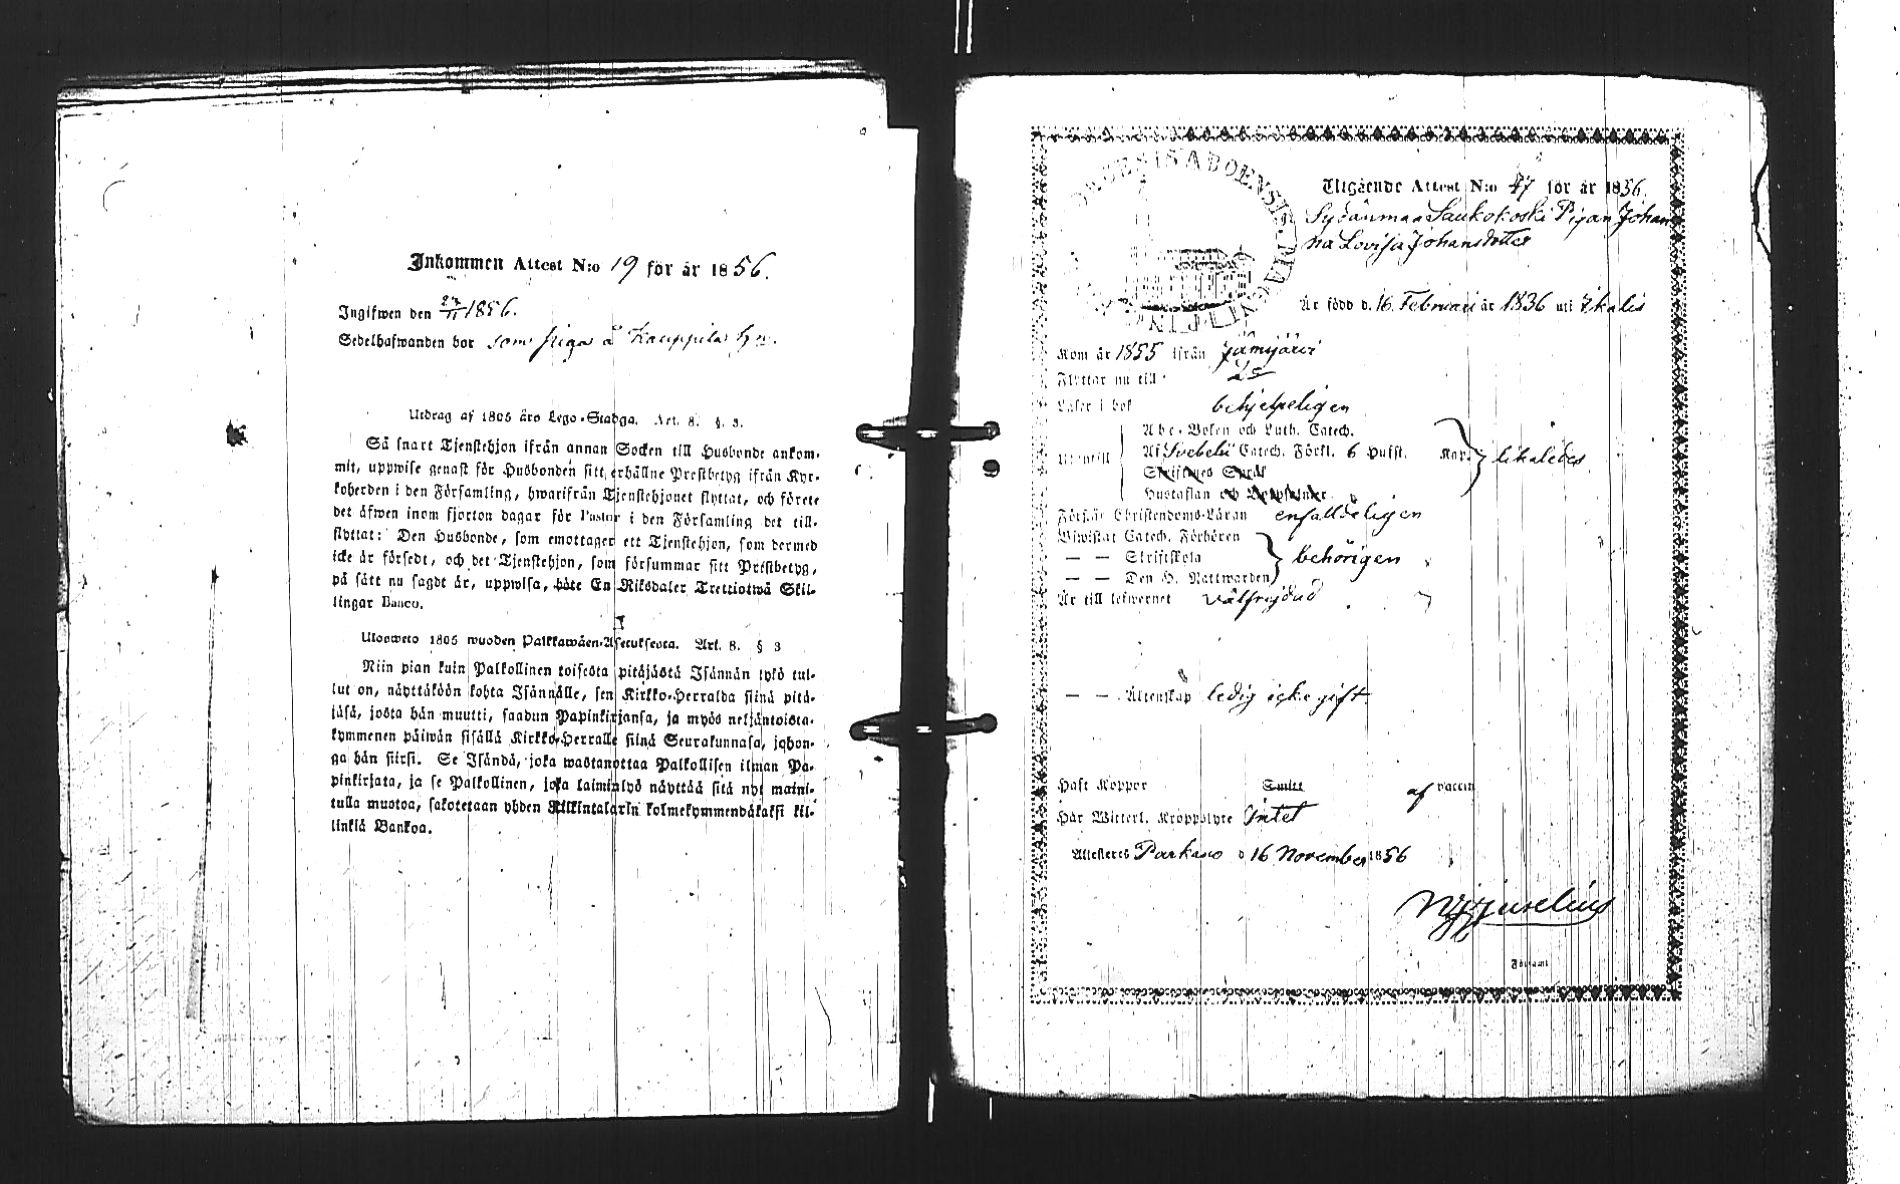 Inkommen Attest N:o 19 för år 1856.
Ingifwen den 27/11 1856.
Sedelhafwanden bor som piga å Kauppila hn.
Utdrag af 1805 års Lego-Stadga. Art. 8. §. 3.
Så snart Tjenstehjon ifrån annan Socken till Husbonde ankom-
mit, uppwise genast för Husbonden sitt erhållne Prestbetyg ifrån Kyr-
koherden i den Församling, hwarifrån Tjenstehjonet flyttat, och förete
det äfwen inom fjorton dagar för Pastor i den Församling det till-
flyttat: Den Husbonde, som emottager ett Tjenstehjon, som dermed
icke är försedt, och det Tjenstehjon, som försummar sitt Prestbetyg,
på sätt nu sagdt är, uppwisa, böte En Riksdaler Trettiotwå Skil-
lingar Banco.
Ulosweto 1805 wuoden Palkkawäen-Asetuksesta. Art. 8. § 3
Niin pian kuin Palkollinen toisesta pitäjästä Isännän tykö tul-
lut on, näyttäköön kohta Isännälle, sen Kirkko-Herralda siinä pitä-
jäsä, josta hän muutti, saadun Papinkirjansa, ja myös neljäntoista-
kymmenen päiwän sisällä Kirkko-Herralle siinä Seurakunnasa, johon-
ga hän siirsi. Se Isändä, joka wastanottaa Palkollisen ilman Pa-
pinkirjata, ja se Palkollinen, joka laiminlyö näyttää sitä nyt maini-
tulla muotoa, sakotetaan yhden Riikintalarin kolmekymmendäkaksi kil-
linkiä Bankoa.
Utgående Attest N:o 47 för år 1856.
Sydänmaa Saukokoski Pigan Johan
na Lovisa Johansdotter
Är född d. 16 Februari år 1836 uti Ikalis
Kom år 1855 ifrån Jämijärvi
Flyttar nu till
Läser i bok behjelpeligen
Abc-Boken och Luth. Catech.
Utantill Af Svebelii Catech. Förkl. 6 Hufst. Kap. likaledes
Skriftenes Språk
Hustaflan och
Förstår Christendoms-Läran enfalldeligen
Biwistat Catech. Förhören
— — Skriftskola behörigen
— — Den H. Nattwarden
Är till lefwernet välfrejdad
— — Äktenskap ledig icke gift.
Haft Koppor Smitt af vaccin
Har Witterl. Kroppslyte Intet
Attesteres Parkano d 16 November 1856